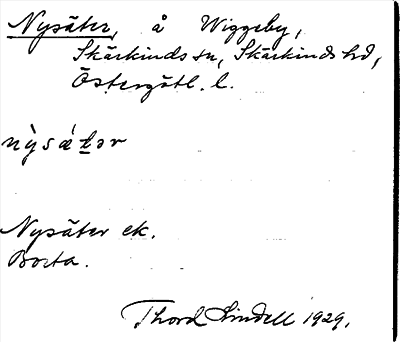 Nysäter, å Wiggeby,
Skärkinds sn, Skärkinds hd,
Östergötl. l.
nỳsǽtər
Nysäter ek.
Borta.
Thord Lindell 1929.